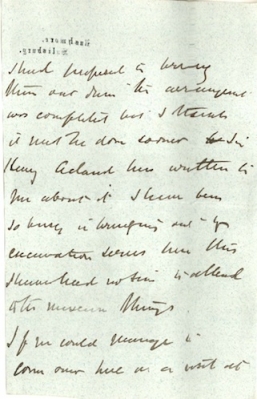 Rushmore,
Salisbury.
I had proposed to bring
them out when the arrangement
was completed but I think
it must be done sooner Sir
Henry Acland has written to
me about it I have been
so busy in bringing out my
excavation series that this
I have had no time to attend
to the museum things.
If you could manage to
come over here on a visit at